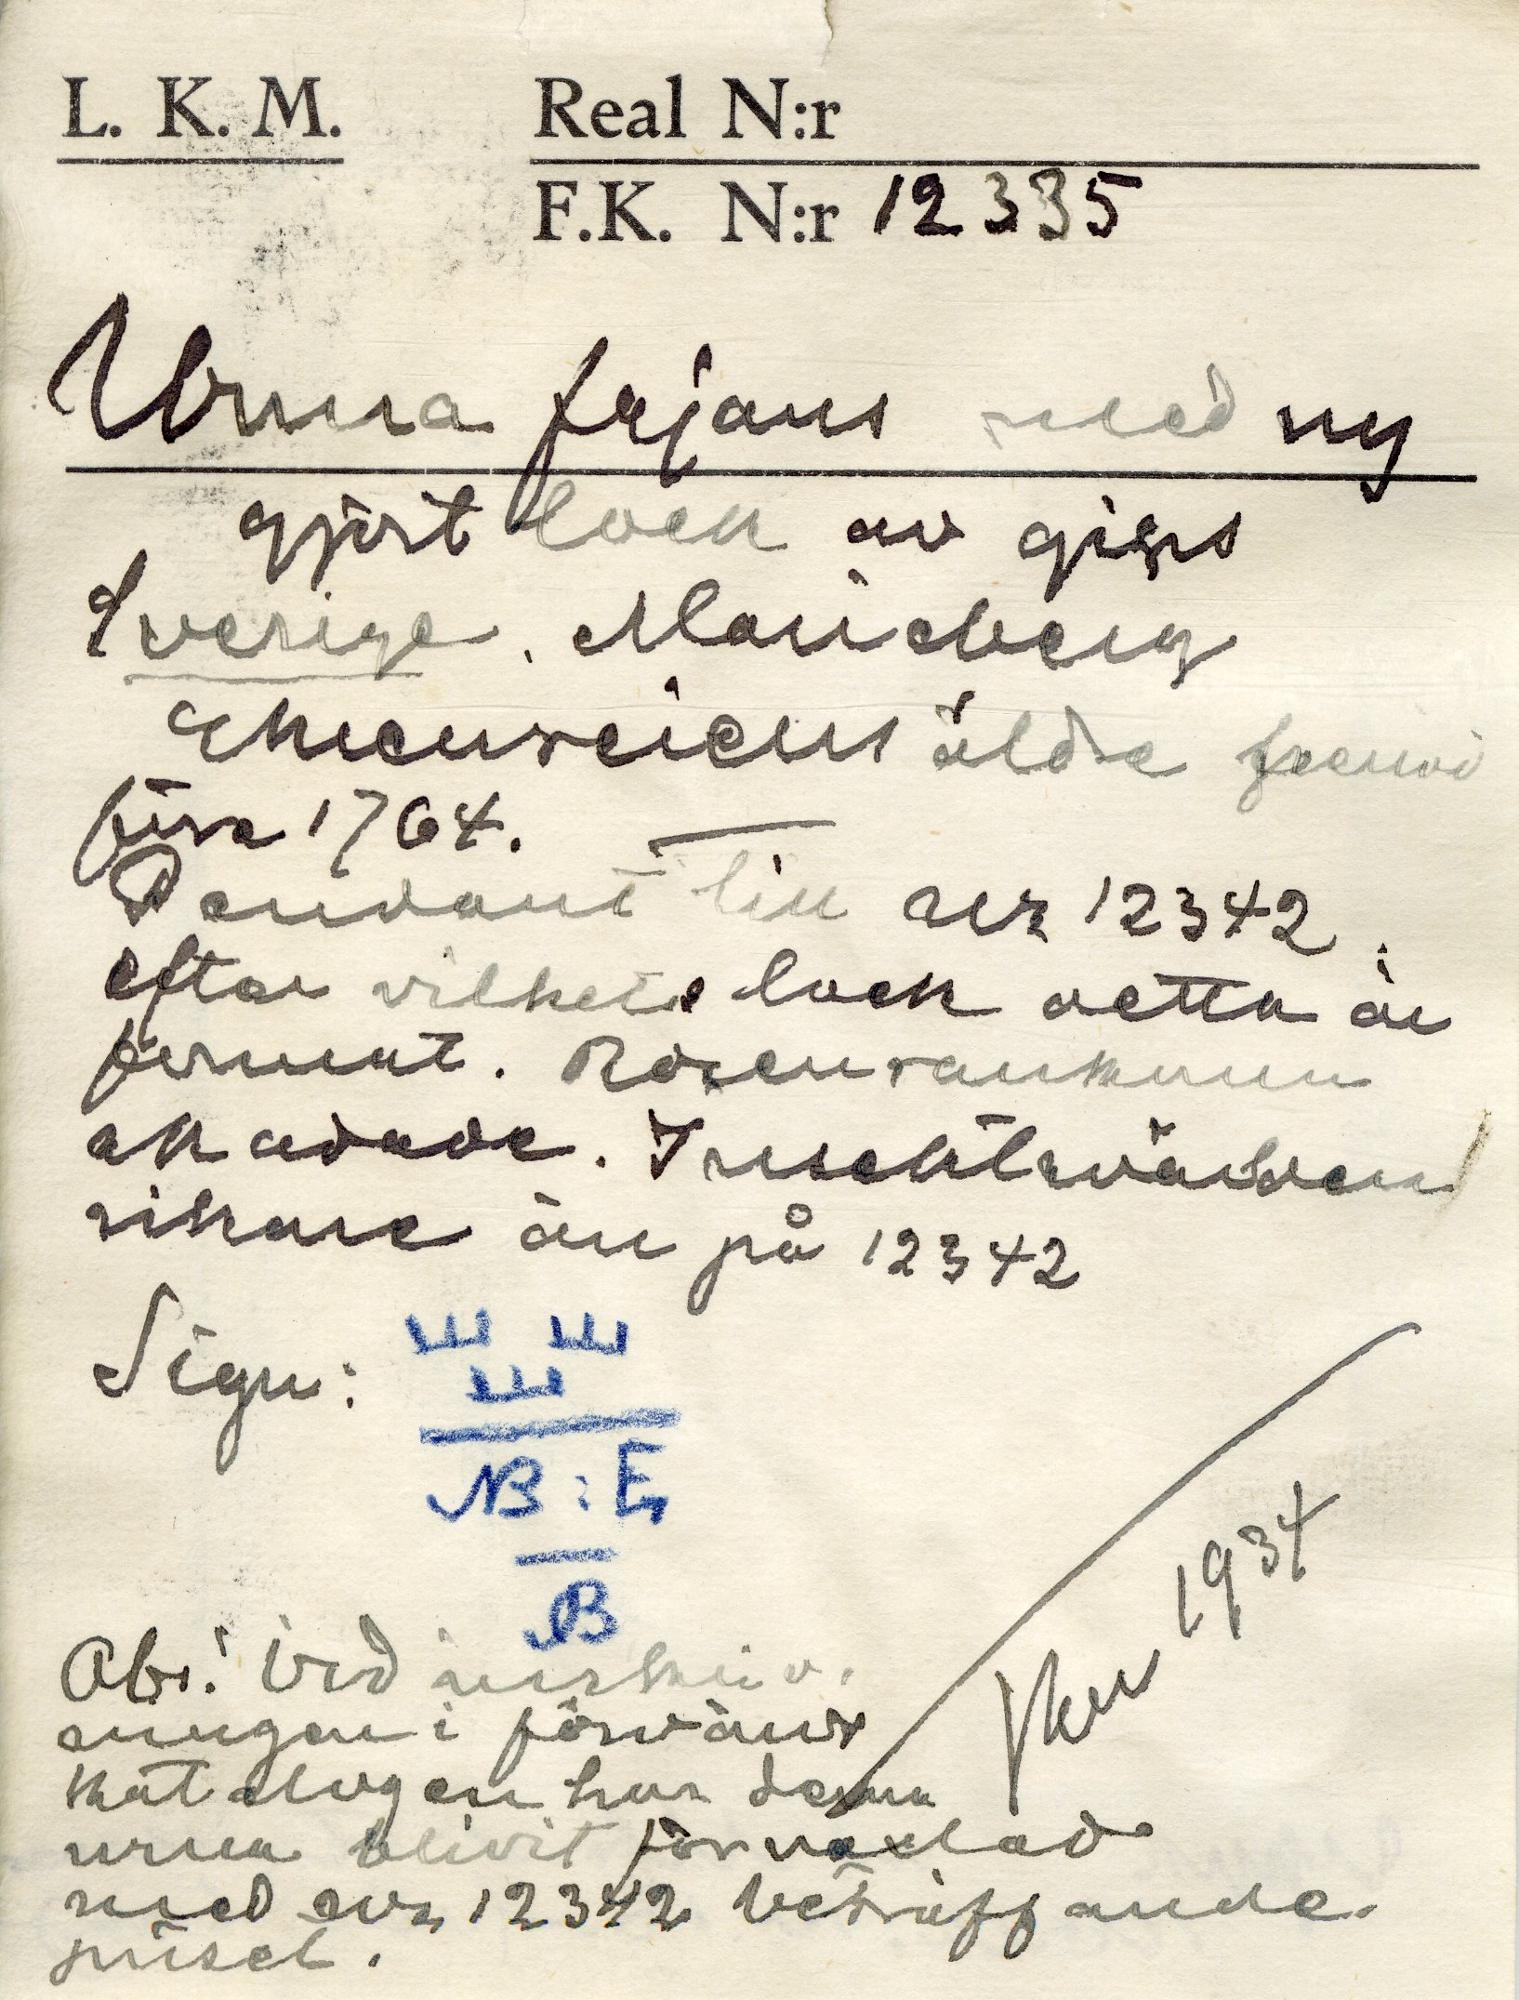 L. K. M. Real N:r
F.K. N:r 12335
Urna fajans med ny
gjort lock av gips
Sverige. Marieberg
Ehrenreichs äldre
före 1764.
Pendant till nr 12342.
efter vilkets lock detta är
format. Rosenrankorna
skadade. Insektsvärlden
rikare än på 12342
Sign:
MB: E
B
Obs! Vid inskriv.
ningen i förvärvs
katalogen har denna
urna blivit förväxlad
med nr 12342 beträffande
priset.
1934